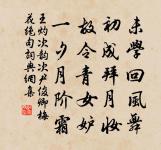 未学回風舞
初成拜月妝
故令青女妒
一夕月階霜
王灼次韵次尹俊卿梅
花絕句詞典網集